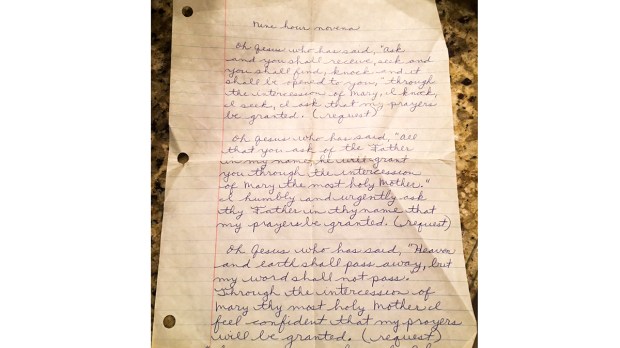 Nine hour novena
Oh Jesus who has said, "Ask
and you shall receive, seek and
you shall find, knock and it
shall be opened to you," through
the intercession of Mary, I knock,
I seek, I ask that my prayers
be granted. (request)
Oh Jesus who has said, "All
that you ask of the Father
in my name, he will grant
you through the intercession
of Mary the most holy Mother."
I humbly and urgently ask
thy Father in thy name that
my prayers be granted. (request)
Oh Jesus who has said, "Heaven
and earth shall pass away, but
my word shall not pass.
Through the intercession of
Mary thy most holy Mother I
feel confident that my prayers
will be granted. (request)